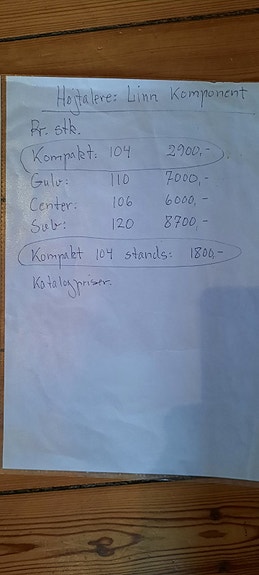 Højtalere: Linn Komponent
Pr. stk.
Kompakt: 104 2900,-
Gulv: 110 7000,-
Center: 106 6000,-
Sub: 120 8700,-
Kompakt 104 stands: 1800,-
Katalogpriser.